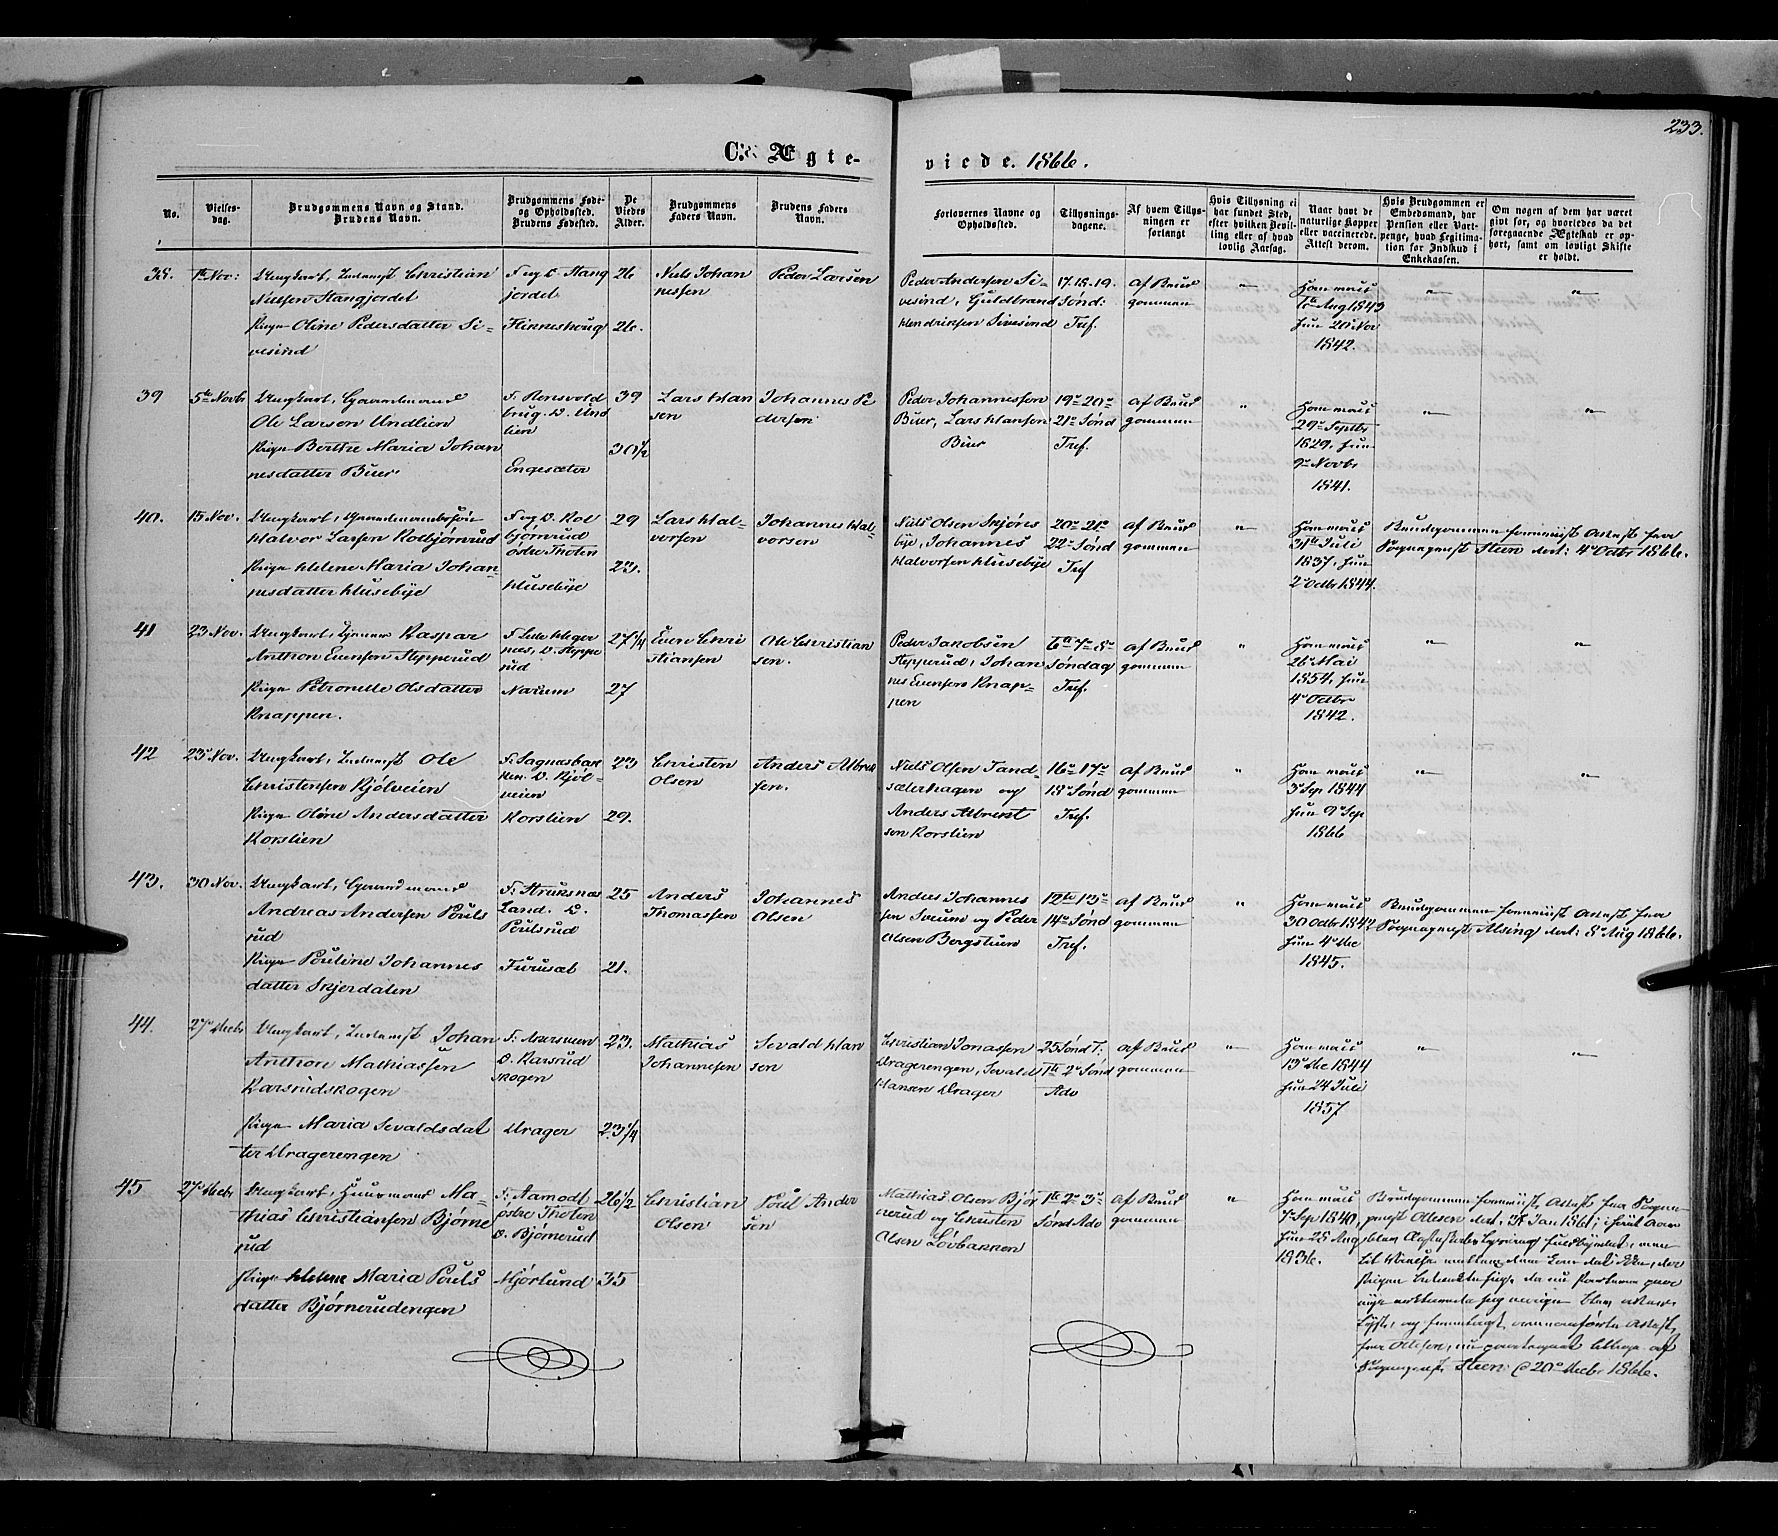 233.
C. Ægte-
viede. 1866.
No.
Vielses-
dag.
Brudgommens Navn og Stand.
Brudens Navn.
Brudgommens Føde-
og Opholdssted.
Brudens Fødested.
De
Viedes
Alder.
Brudgommens
Faders Navn.
Brudens Faders
Navn.
Forlovernes Navne og
Opholdssted.
Tillysnings-
dagene.
Af hvem Tillys-
ningen er
forlangt
Hvis Tillysning ei
har fundet Sted,
efter hvilken Bevil-
ling eller af hvad
lovlig Aarsag.
Naar havt de
naturlige Kopper
eller vaccinerede.
Attest derom.
Hvis Brudgommen er
Embedsmand, har
Pension eller Vart-
penge, hvad Legitima-
tion for Indskud i
Enkekassen.
Om nogen af dem har været
givt før, og hvorledes da det
foregaaende Ægteskab er op-
hørt, samt om lovligt Skifte
er holdt.
38. 1te Nov:
Ungkarl, Inderst Christian
Nielsen Stangjordet
Pige Oline Pedersdatter Si-
vesind
F og O. Stang
jordet
Flinneshoug
26
26.
Niels Johan
nessen
Peder Larsen
Peder Andersen Si-
vesind, Guldbrand
Hendriksen Sivesind
17. 18. 19.
Sønd:
Tref.
af Brud
gommen
"
Ham mait
1te Aug 1843
hun 20 Nov
1842.
"
"
39 5te Novbr
Ungkarl, Gaardmand
Ole Larsen Undlien
Pige Berthe Maria Johan
nesdatter Buer
F. Ronsvold
brug. O. Und
lien
Engesæter
39
30 1/2
Lars Han
sen
Johannes Pe
dersen
Peder Johannessen
Buer, Lars Hansen
Buer
19de 20de
21de Sønd
Tref.
af Brud
gommen
"
Ham mait
29de Septbr
1829, hun
9de Novbr
1841.
"
"
40. 15 Nov.
Ungkarl, Gaardmandssøn
Halvor Larsen Kolbjørnrud
Pige Helene Maria Johan-
nesdatter Husebye
F og O. Kol
bjørnrud
østre Thoten
Husebye
29
23.
Lars Hal-
vorsen
Johannes Hal-
vorsen
Niels Olsen Skjøns
bye, Johannes
Halvorsen Husebye
20de 21de
22de Sønd
Tref
af Brud
gommen
"
Ham mait
31te Juli
1837, hun
2 Octbr 1844.
Brudgommen foreviist Attest fra
Sogneprest Steen dat: 4 Octbr 1866.
41 23 Nov.
Ungkarl, Tjener Kaspar
Anthon Evensen Stepperud
Pige Petronelle Olsdatter
Knappen.
F. Lille Heger
nes, O. Steppe
rud
Narum
27 1/4
27
Even Chri
stiansen
Ole Christian
sen.
Peder Jakobsen
Stepperud, Johan
nes Evensen Knap-
pen
6te 7de 8de
Søndag
Tref.
af Brud
gommen
"
Ham mait
26 Mai
1854, hun
4 Octbr
1842.
"
"
42 23 Nov.
Ungkarl, Inderst Ole
Christensen Kjølveien
Pige Oline Andersdatter
Korslien
F. Sagnæsbak
ken. O. Kjøl-
veien
Korslien
23
29.
Christen
Olsen
Anders Albret
sen.
Niels Olsen Sand-
sæterhagen og
Anders Albret
sen Korslien
16de 17de
18de Sønd
Tref.
af Brud
gommen
"
Ham mait
3 Sep 1844
hun 9 Sep
1866
"
"
43. 30 Nov.
Ungkarl, Gaardmand
Andreas Andersen Pouls
rud
Pige Pouline Johannes
datter Skjerdalen
F: Struksnæs
Land. O.
Poulsrud
Furusæt
25
21.
Anders
Thomassen
Johannes
Olsen
Anders Johannes
sen Sveum og Peder
Olsen Bergstuen
12te 13de
14de Sønd
Tref.
af Brud
gommen
"
Ham mait
30 Octbr 1842
hun 4 Dec
1845.
Brudgommen foreviist Attest fra
Sogneprest Alsing dat: 8 Aug 1866.
44. 27 Decbr
Ungkarl, Inderst Johan
Anthon Mathiassen
Karsrudskogen
Pige Maria Sevaldsdat
ter Dragerengen
F: Aasrumen
O. Karsrud
skogen
Drager
23.
23 1/4
Mathias
Johannesen
Sevald Han
sen
Christian Jonassen
Dragerengen, Sevald
Hansen Drager
25 Sønd T:
1te 2de Sønd
Adv
af Brud
gommen
"
Ham mait
13 Dec 1844
hun 24 Juli
1857
"
"
45 27 Decbr
Ungkarl, Huusmand Ma-
thias Christiansen Bjørne
rud
Pige Helene Maria Pouls
datter Bjørnerudengen
F: Aamodt
østre Thoten
O. Bjørnerud
Mjørlund
26 1/2
35
Christian
Olsen
Poul Ander
sen
Mathias Olsen Bjør
nerud og Christen
Olsen Løvbakken
1te 2de 3de
Sønd Adv
af Brud
gommen
"
Ham mait
7 Sep 1840,
hun 25 Aug
1836.
Brudgommen foreviist Attest fra Sogne
prest Ottesen dat. 31 Jan 1861;
Ottesen,
Sogneprest Steen 20 Decbr 1866.